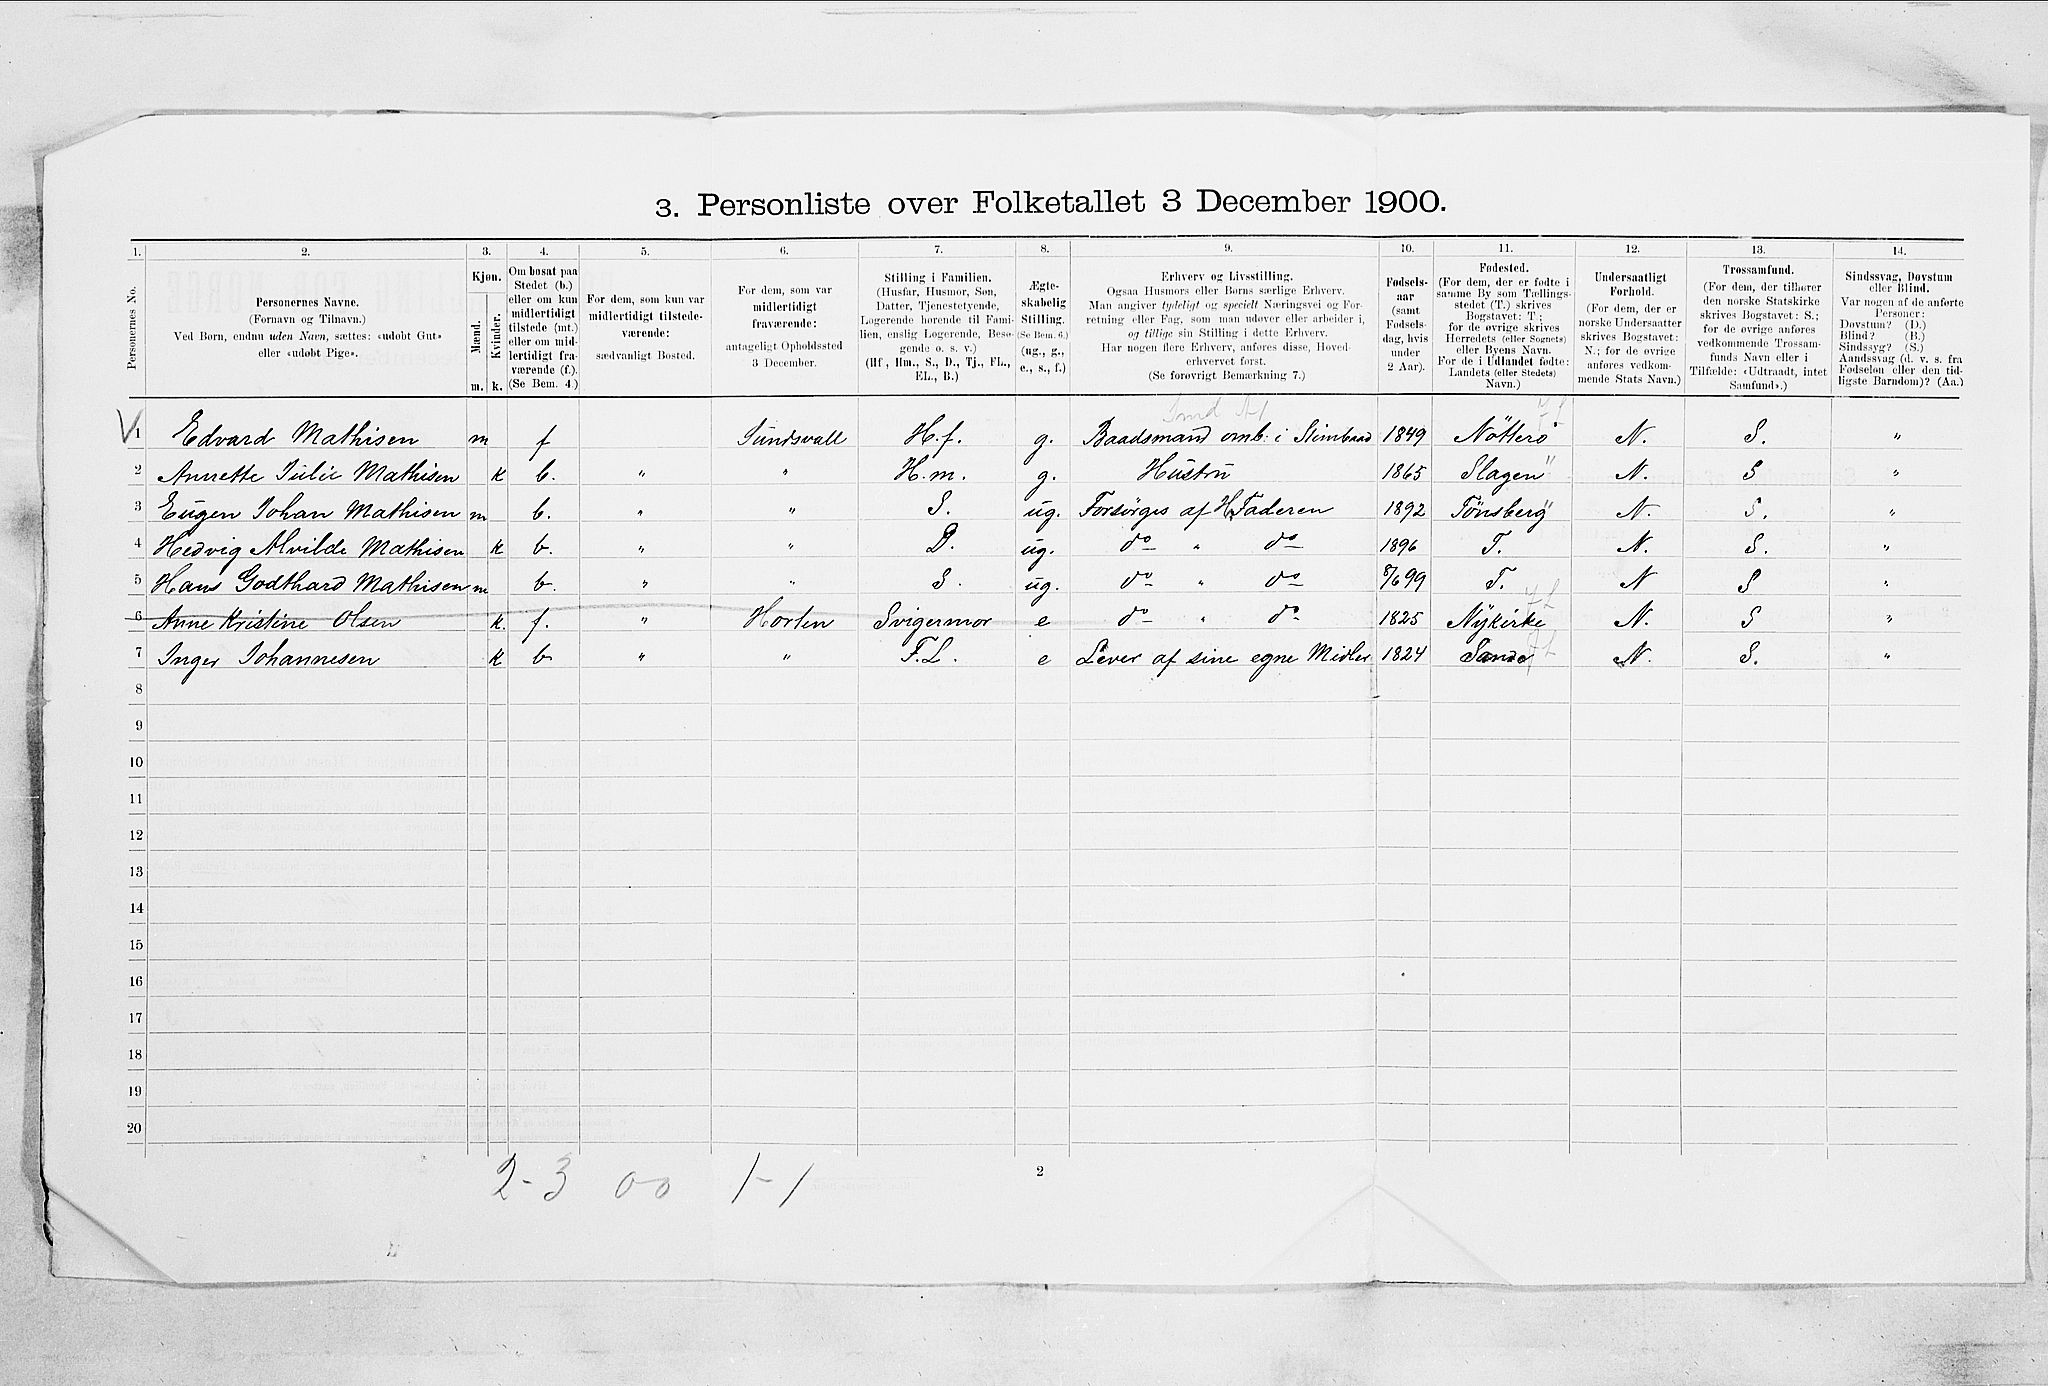 3. Personliste over Folketallet 3 December 1900.
1. 2. 3. 4. 5. 6. 7. 8. 9. 10. 11. 12. 13. 14.
Personernes No.
Personernes Navne.
(Fornavn og Tilnavn.)
Ved Børn, endnu uden Navn, sættes: «udøbt Gut»
eller «udøbt Pige».
Kjøn.
Mænd.
Kvinder.
m. k.
Om bosat paa
Stedet (b.)
eller om kun
midlertidigt
tilstede (mt.)
eller om mid-
lertidigt fra-
værende (f.).
(Se Bem. 4.)
For dem, som kun var
midlertidigt tilstede-
værende:
sædvanligt Bosted.
For dem, som var
midlertidigt
fraværende:
antageligt Opholdssted
3 December.
Stilling i Familien.
(Husfar, Husmor, Søn,
Datter, Tjenestetyende,
Logerende hørende til Fami-
lien, enslig Logerende, Besø-
gende o. s. v.)
(Hf., Hm., S., D., Tj., FL.,
EL., B.)
Ægte-
skabelig
Stilling.
(Se Bem. 6.)
(ug., g.,
e., s., f.)
Erhverv og Livsstilling.
Ogsaa Husmors eller Børns særlige Erhverv.
Man angiver tydeligt og specielt Næringsvei og For-
retning eller Fag, som man udøver eller arbeider i,
og tillige sin Stilling i dette Erhverv.
Har nogen flere Erhverv, anføres disse, Hoved-
erhvervet først.
(Se forøvrigt Bemærkning 7.)
Fødsels-
aar
(samt
Fødsels-
dag, hvis
under
2 Aar).
Fødested.
(For dem, der er fødte i
samme By som Tællings-
stedet (T.) skrives
Bogstavet: T.;
for de øvrige skrives
Herredets (eller Sognets)
eller Byens Navn.
For de i Udlandet fødte:
Landets (eller Stedets)
Navn.)
Undersaatligt
Forhold.
(For dem, der er
norske Undersaatter
skrives Bogstavet:
N.; for de øvrige
anføres vedkom-
mende Stats Navn.)
Trossamfund.
(For dem, der tilhører
den norske Statskirke
skrives Bogstavet: S.;
for de øvrige anføres
vedkommende Trossam-
funds Navn eller i
Tilfælde: «Udtraadt, intet
Samfund».)
Sindssvag, Døvstum
eller Blind.
Var nogen af de anførte
Personer:
Døvstum? (D.)
Blind? (B.)
Sindssyg? (S.)
Aandssvag (d. v. s. fra
Fødselen eller den tid-
ligste Barndom)? (Aa.)
1 Edvard Mathisen m f Sundsvall H.f. g. Baadsmand omb. i Stimbaad 1849 Nötterö N. S. "
2 Annette Julie Mathisen k b. " " H.m. g. Hustru 1865 Slagen N. S "
3 Eugen Johan Mathisen m b. " " S. ug. Forsörges af H. Faderen 1892 Tönsberg N. S. "
4 Hedvig Alvilde Mathisen k b. " " D. ug. do " do 1896 T. N. S. "
5 Hans Godthard Mathisen m b. " " S. ug. do " do 8/6 99 T. N S "
6 Anne Kristine Olsen k. f. " Horten Svigermor e do " do 1825 Nykirke N. S "
7 Inger Johannesen k b " " F.L. e Lever af sine egne Midler 1824 Sande N. S. "
8
9
10
11
12
13
14
15
16
17
18
19
20
2-3 0-0 1-1
2